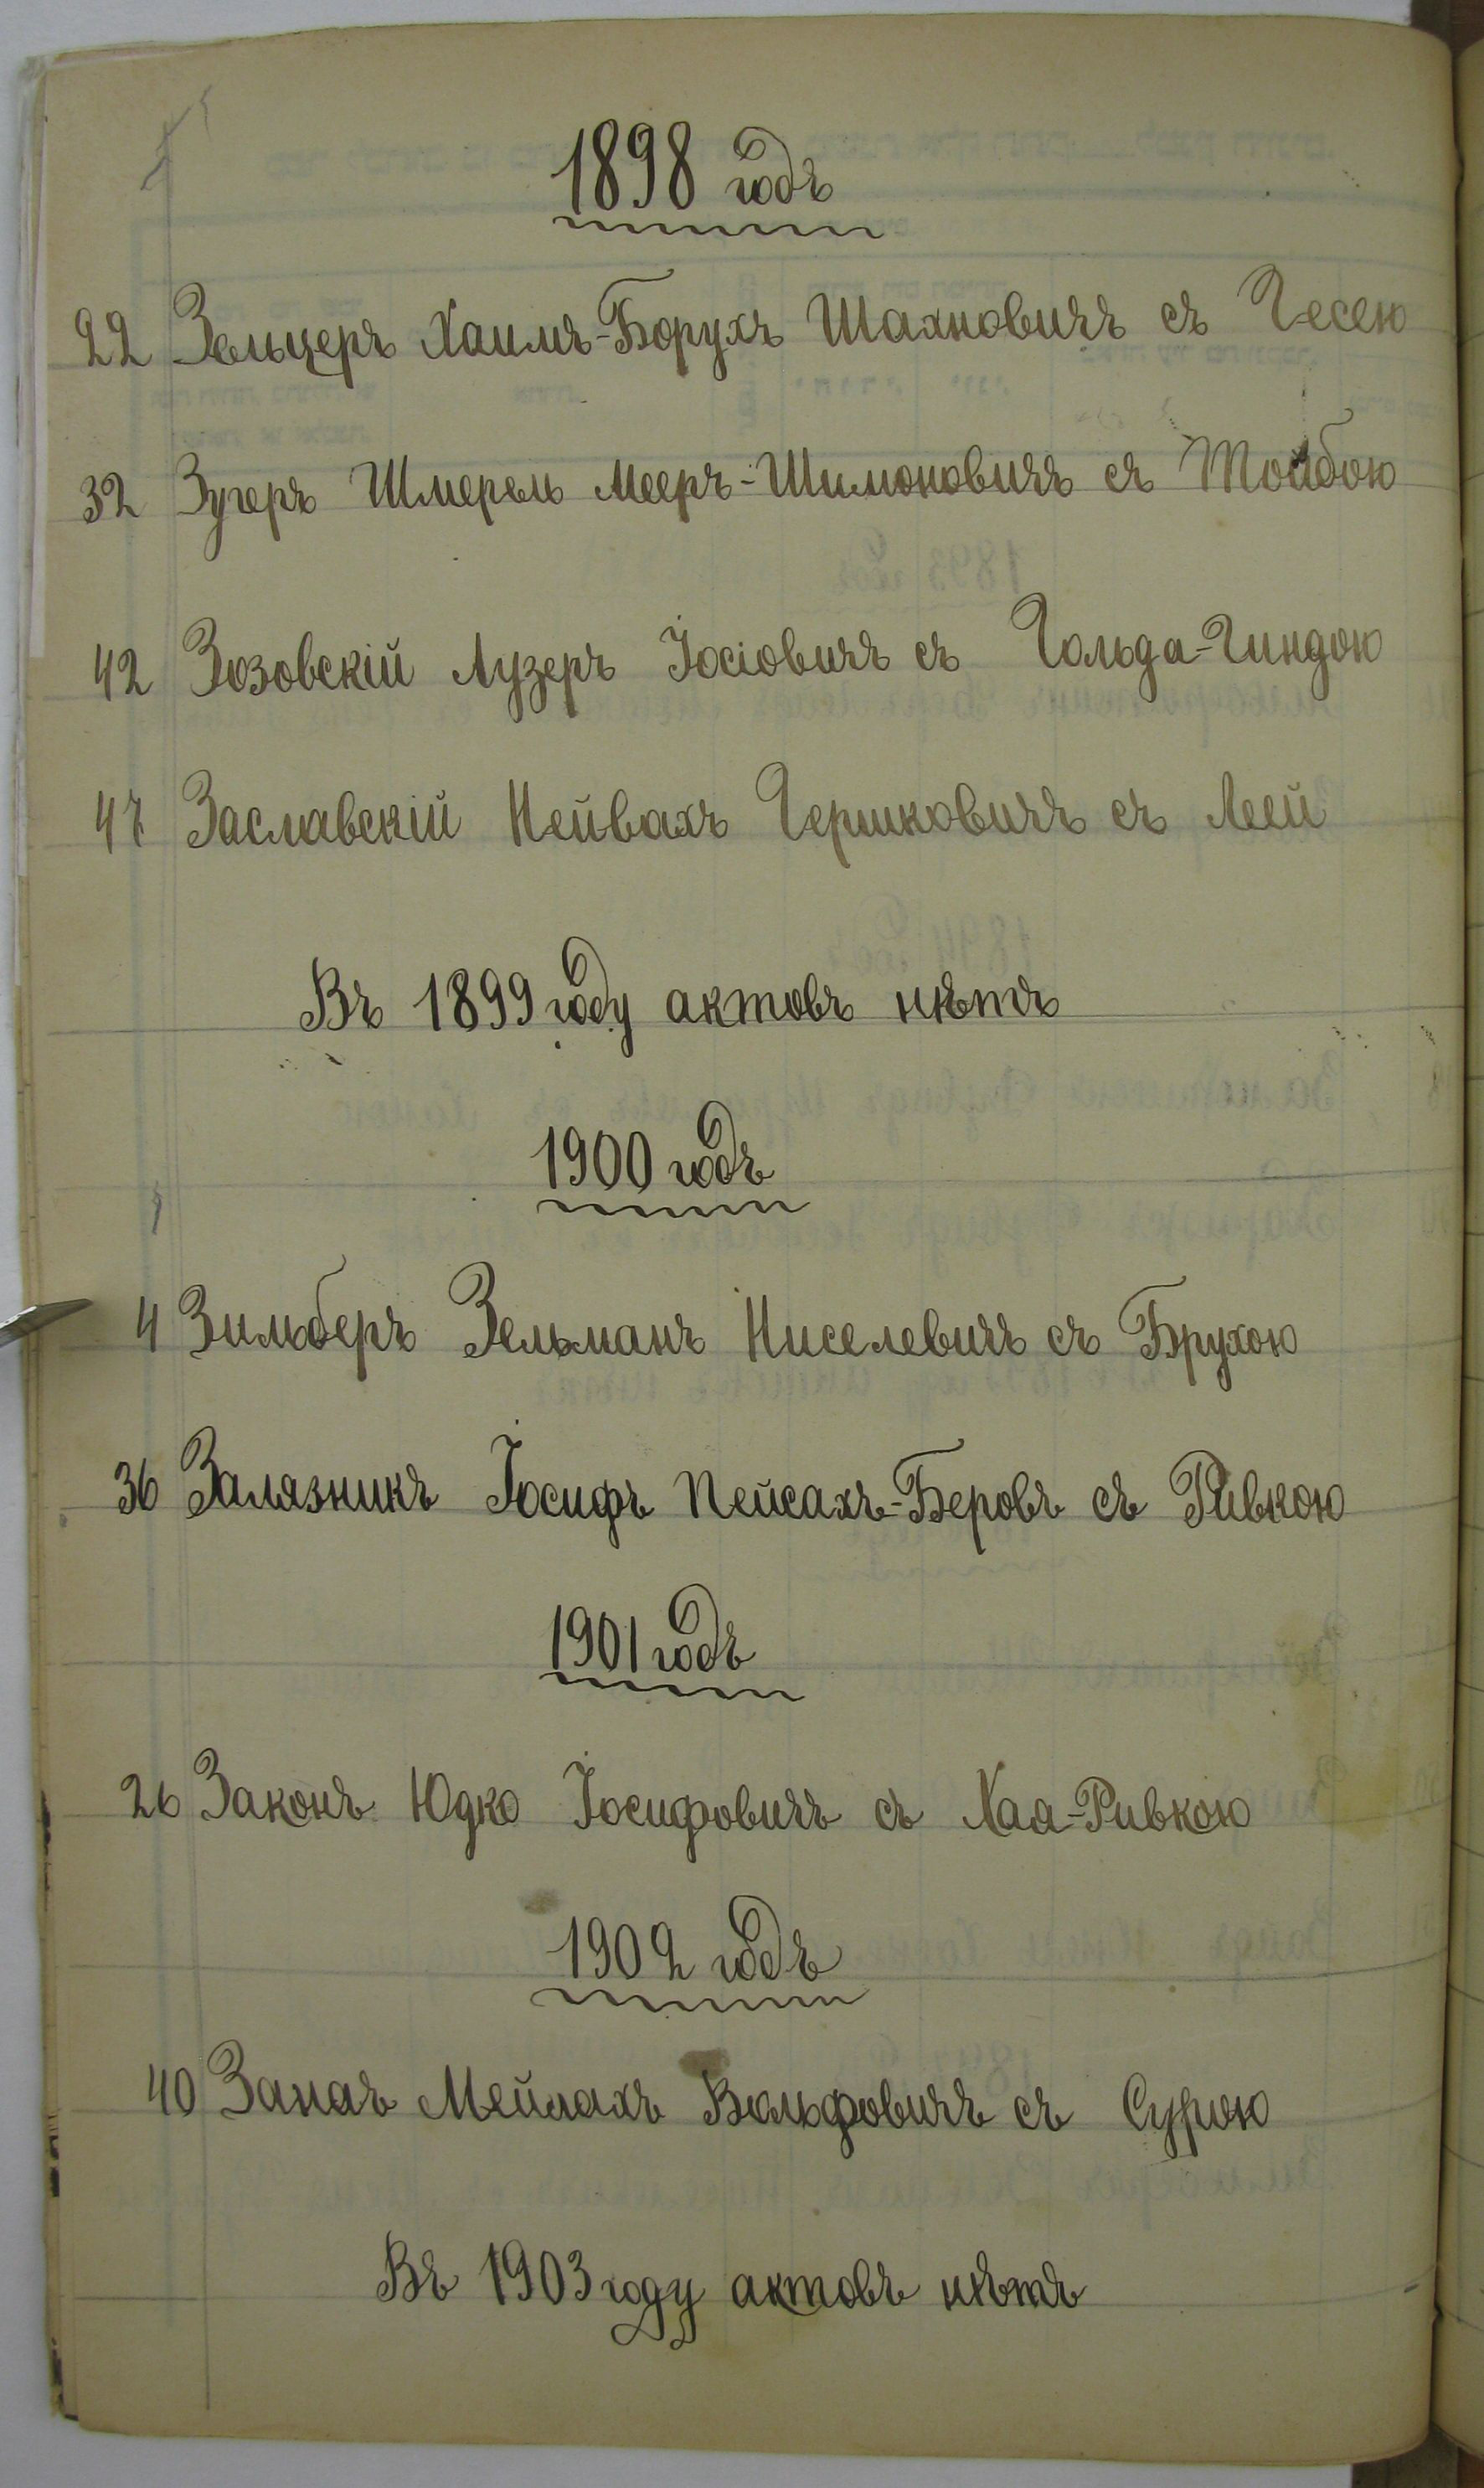 1898 годъ
22 Зельцеръ Хаимъ-Борухъ Шахновичъ съ Гесею
32 Зугеръ Шмерель Мееръ-Шимоновичъ съ Тойбою
42 Зозовскій Лузеръ Іосіовичъ съ Гольда-Гиндою
47 Заславскій Нейвахъ Гершковичъ съ Леей
Въ 1899 году актовъ нѣтъ
1900 годъ
4 Зильберъ Зельманъ Ниселевичъ съ Брухою
36 Залязникъ Іосифъ Пейсахъ-Беровъ съ Ривкою
1901 годъ
26 Законъ Юдко Іосифовичъ съ Хая-Ривкою
1902 годъ
40 Мейлахъ Вольфовичъ съ Сурою
Въ 1903 году актовъ нѣтъ